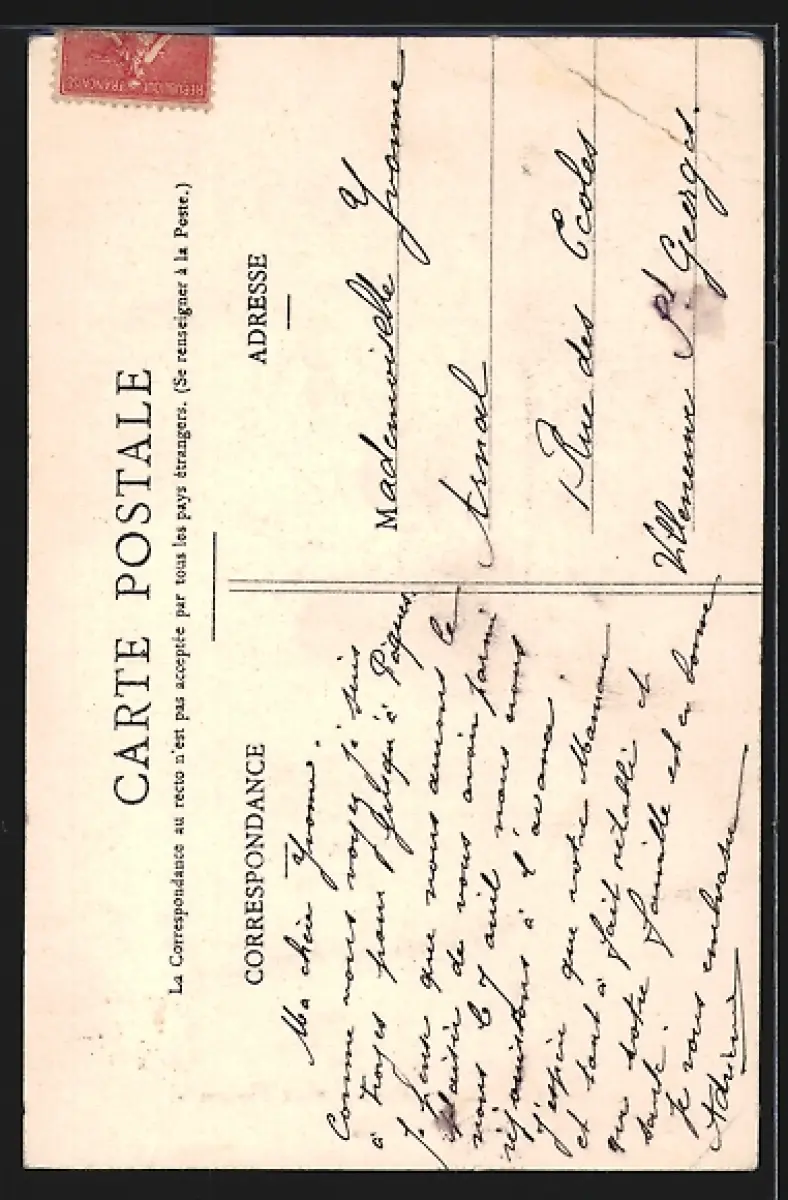 REPUBLIQUE FRANÇAISE
CARTE POSTALE
La Correspondance au recto n'est pas acceptée par tous les pays étrangers. (Se renseigner à la Poste.)
CORRESPONDANCE
Ma chère Yvonne.
Comme vous voyez je suis
à Troyes pour jusqu'à Pâques.
Je pense que nous aurons le
plaisir de vous avoir parmi
nous le 7 avril nous nous
réjouissons à l'avance.
J'espère que votre Maman
est tout à fait rétablie et
que votre famille est en bonne
santé.
Je vous embrasse
ADRESSE
Mademoiselle Yvonne
Arnal
Rue des Ecoles
Villeneuve St Georges.